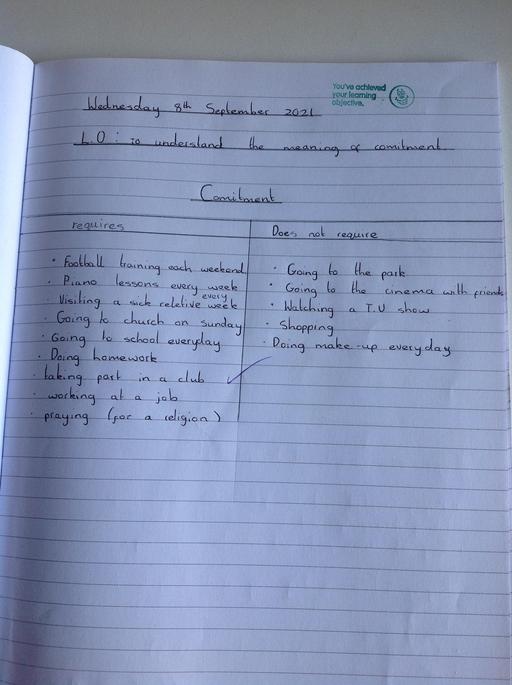 You've achieved
your learning
objective.
Wednesday 8th September 2021
L.O: to understand the meaning of comitment
Comitment
requires
Does not require
• Football training each weekend
• Piano lessons every week
• Visiting a sick reletive every week
• Going to church on sunday
• Going to school everyday
• Doing homework
• taking part in a club
• working at a job
• praying (for a religion)
• Going to the park
• Going to the cinema with friends
• Watching a T.V show
• Shopping
• Doing make-up everyday